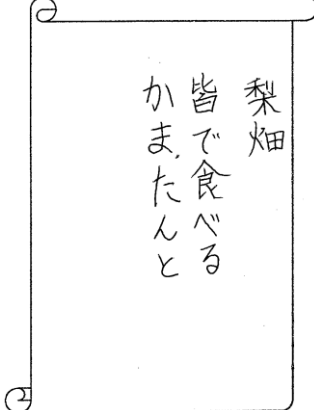 梨畑
皆で食べる
かま、たんと